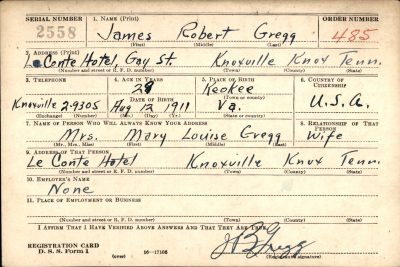 SERIAL NUMBER 1. NAME (Print) ORDER NUMBER
2558 James Robert Gregg 485
(First) (Middle) (Last)
2. ADDRESS (Print)
Le Conte Hotel, Gay St. Knoxville Knox Tenn.
(Number and street or R. F. D. number) (Town) (County) (State)
3. TELEPHONE 4. AGE IN YEARS 5. PLACE OF BIRTH 6. COUNTRY OF CITIZENSHIP
28 Keokee
DATE OF BIRTH (Town or county)
Knoxville 2-9305 Aug 12, 1911 Va. U.S.A.
(Exchange) (Number) (Mo.) (Day) (Yr.) (State or country)
7. NAME OF PERSON WHO WILL ALWAYS KNOW YOUR ADDRESS 8. RELATIONSHIP OF THAT PERSON
Mrs. Mary Louise Gregg Wife
(Mr., Mrs., Miss) (First) (Middle) (Last)
9. ADDRESS OF THAT PERSON
Le Conte Hotel Knoxville Knox Tenn.
(Number and street or R. F. D. number) (Town) (County) (State)
10. EMPLOYER'S NAME
None
11. PLACE OF EMPLOYMENT OR BUSINESS
(Number and street or R. F. D. number) (Town) (County) (State)
I AFFIRM THAT I HAVE VERIFIED ABOVE ANSWERS AND THAT THEY ARE TRUE.
REGISTRATION CARD
D. S. S. Form 1 (over) 16—17105 (Registrant's signature)